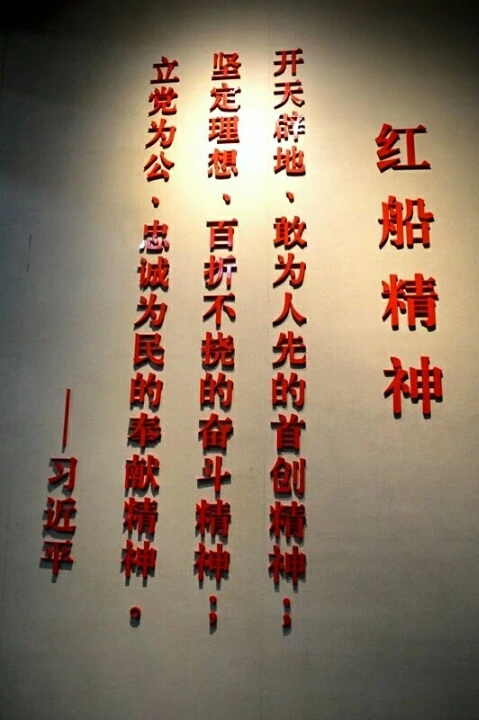 红船精神
开天辟地、敢为人先的首创精神；
坚定理想、百折不挠的奋斗精神；
立党为公、忠诚为民的奉献精神。
——习近平